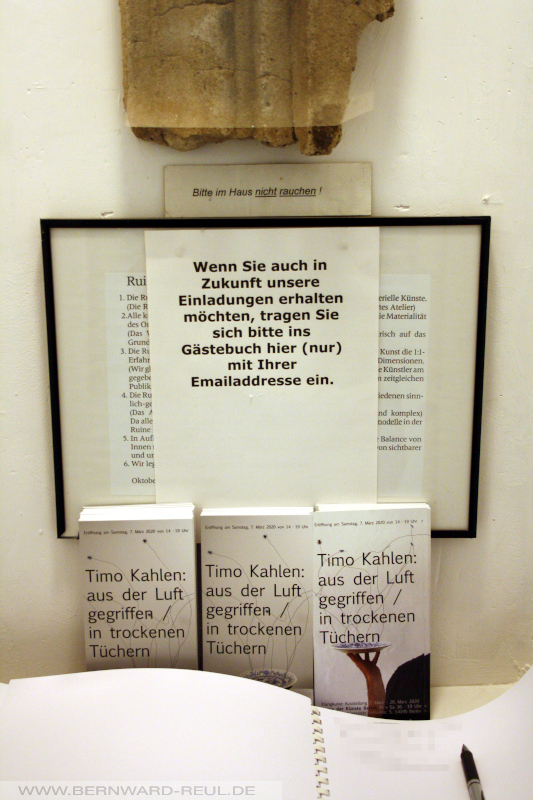 Bitte im Haus nicht rauchen !
Wenn Sie auch in
Zukunft unsere
Einladungen erhalten
möchten, tragen Sie
sich bitte ins
Gästebuch hier (nur)
mit Ihrer
Emailaddresse ein.
Rui
1. Die Ru
(Die R
2.Alle k
des O
(Das
Grund
3. Die Ru
Erfahr
(Wir gl
gegeb
Publik
4. Die Ru
lich-ge
(Das
Da alle
Ruine
5. In Auf
Innen
und u
6. Wir leg
Oktobe
erielle Künste.
tes Atelier)
ie Materialität
risch auf das
Kunst die 1:1-
Dimensionen.
e Künstler am
m zeitgleichen
iedenen sinn-
und komplex)
modelle in der
e Balance von
von sichtbarer
Eröffnung am Samstag, 7. März 2020 von 14 - 19 Uhr
Timo Kahlen:
aus der Luft
gegriffen /
in trockenen
Tüchern
Eröffnung am Samstag, 7. März 2020 von 14 - 19 Uhr
Timo Kahlen:
aus der Luft
gegriffen /
in trockenen
Tüchern
Eröffnung am Samstag, 7. März 2020 von 14 - 19 Uhr
Timo Kahlen:
aus der Luft
gegriffen /
in trockenen
Tüchern
WWW.BERNWARD-REUL.DE